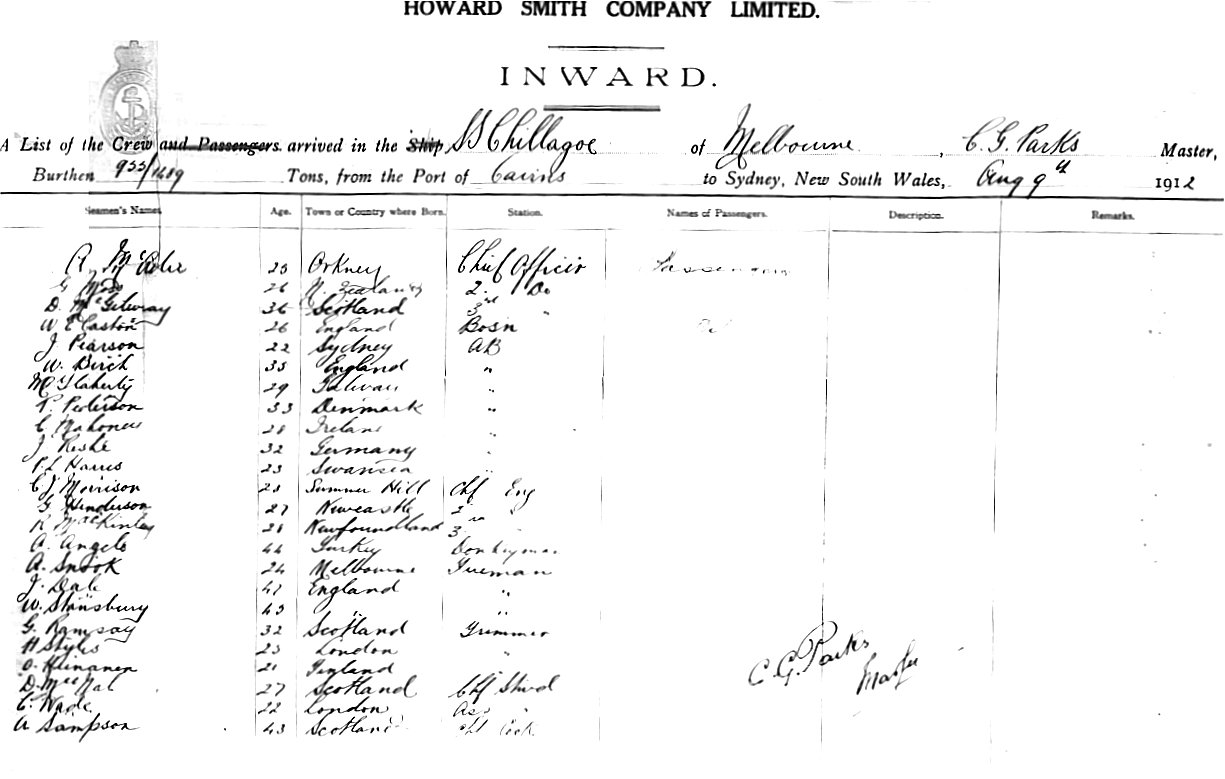 HOWARD SMITH COMPANY LIMITED.
INWARD.
A List of the Crew and Passengers arrived in the Ship, SS Chillagoe of Melbourne, C. G. Parks Master,
Burthen 955/1489 Tons, from the Port of Cairns to Sydney, New South Wales, Aug 9th 1912
Seamen's Names Age. Town or Country where Born. Station. Names of Passengers. Description. Remarks.
R. 25 Orkney Chief Officer
G Moss 26 N. Zealand 2. Do
D. McGilvray 36 Scotland 3rd "
W E Caston 26 England Bosn
J Pearson 22 Sydney AB
W. Birch 35 England "
M Flaherty 29 Galway "
P. Pederson 33 Denmark "
C Mahoney 28 Ireland "
J 32 Germany "
P L Harris 23 Swansea "
C J Morrison 25 Summer Hill Chf Eng
G Henderson 27 Newcastle 2 "
R MacKinley 28 Newfoundland 3 "
A. Angelo 44 Turkey Donkeyman
A. Snook 24 Melbourne Fireman
J. Dale 41 England "
W. Stansbury 43 " "
G. Ramsay 32 Scotland Trimmer
H Styles 23 London "
O. Heinanen 21 Finland
D. McNab 27 Scotland Chf Stwd
C. Wade 22 London Ass "
A Sampson 43 Scotland Chf Cook
C. G. Parks
Master